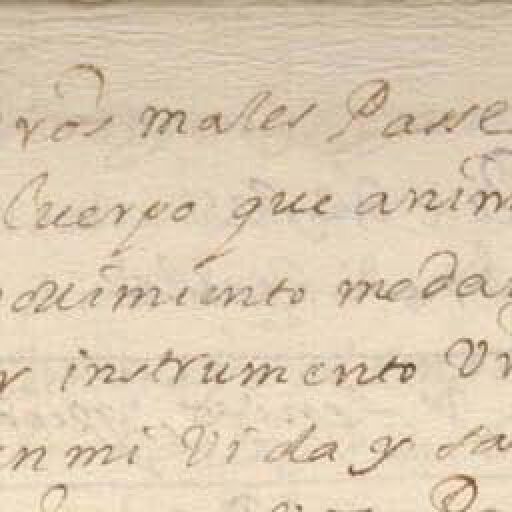 vrōs males Passe
Cuerpo que anim
ovimiento me da
y instrumento V
en mi Vida y sa